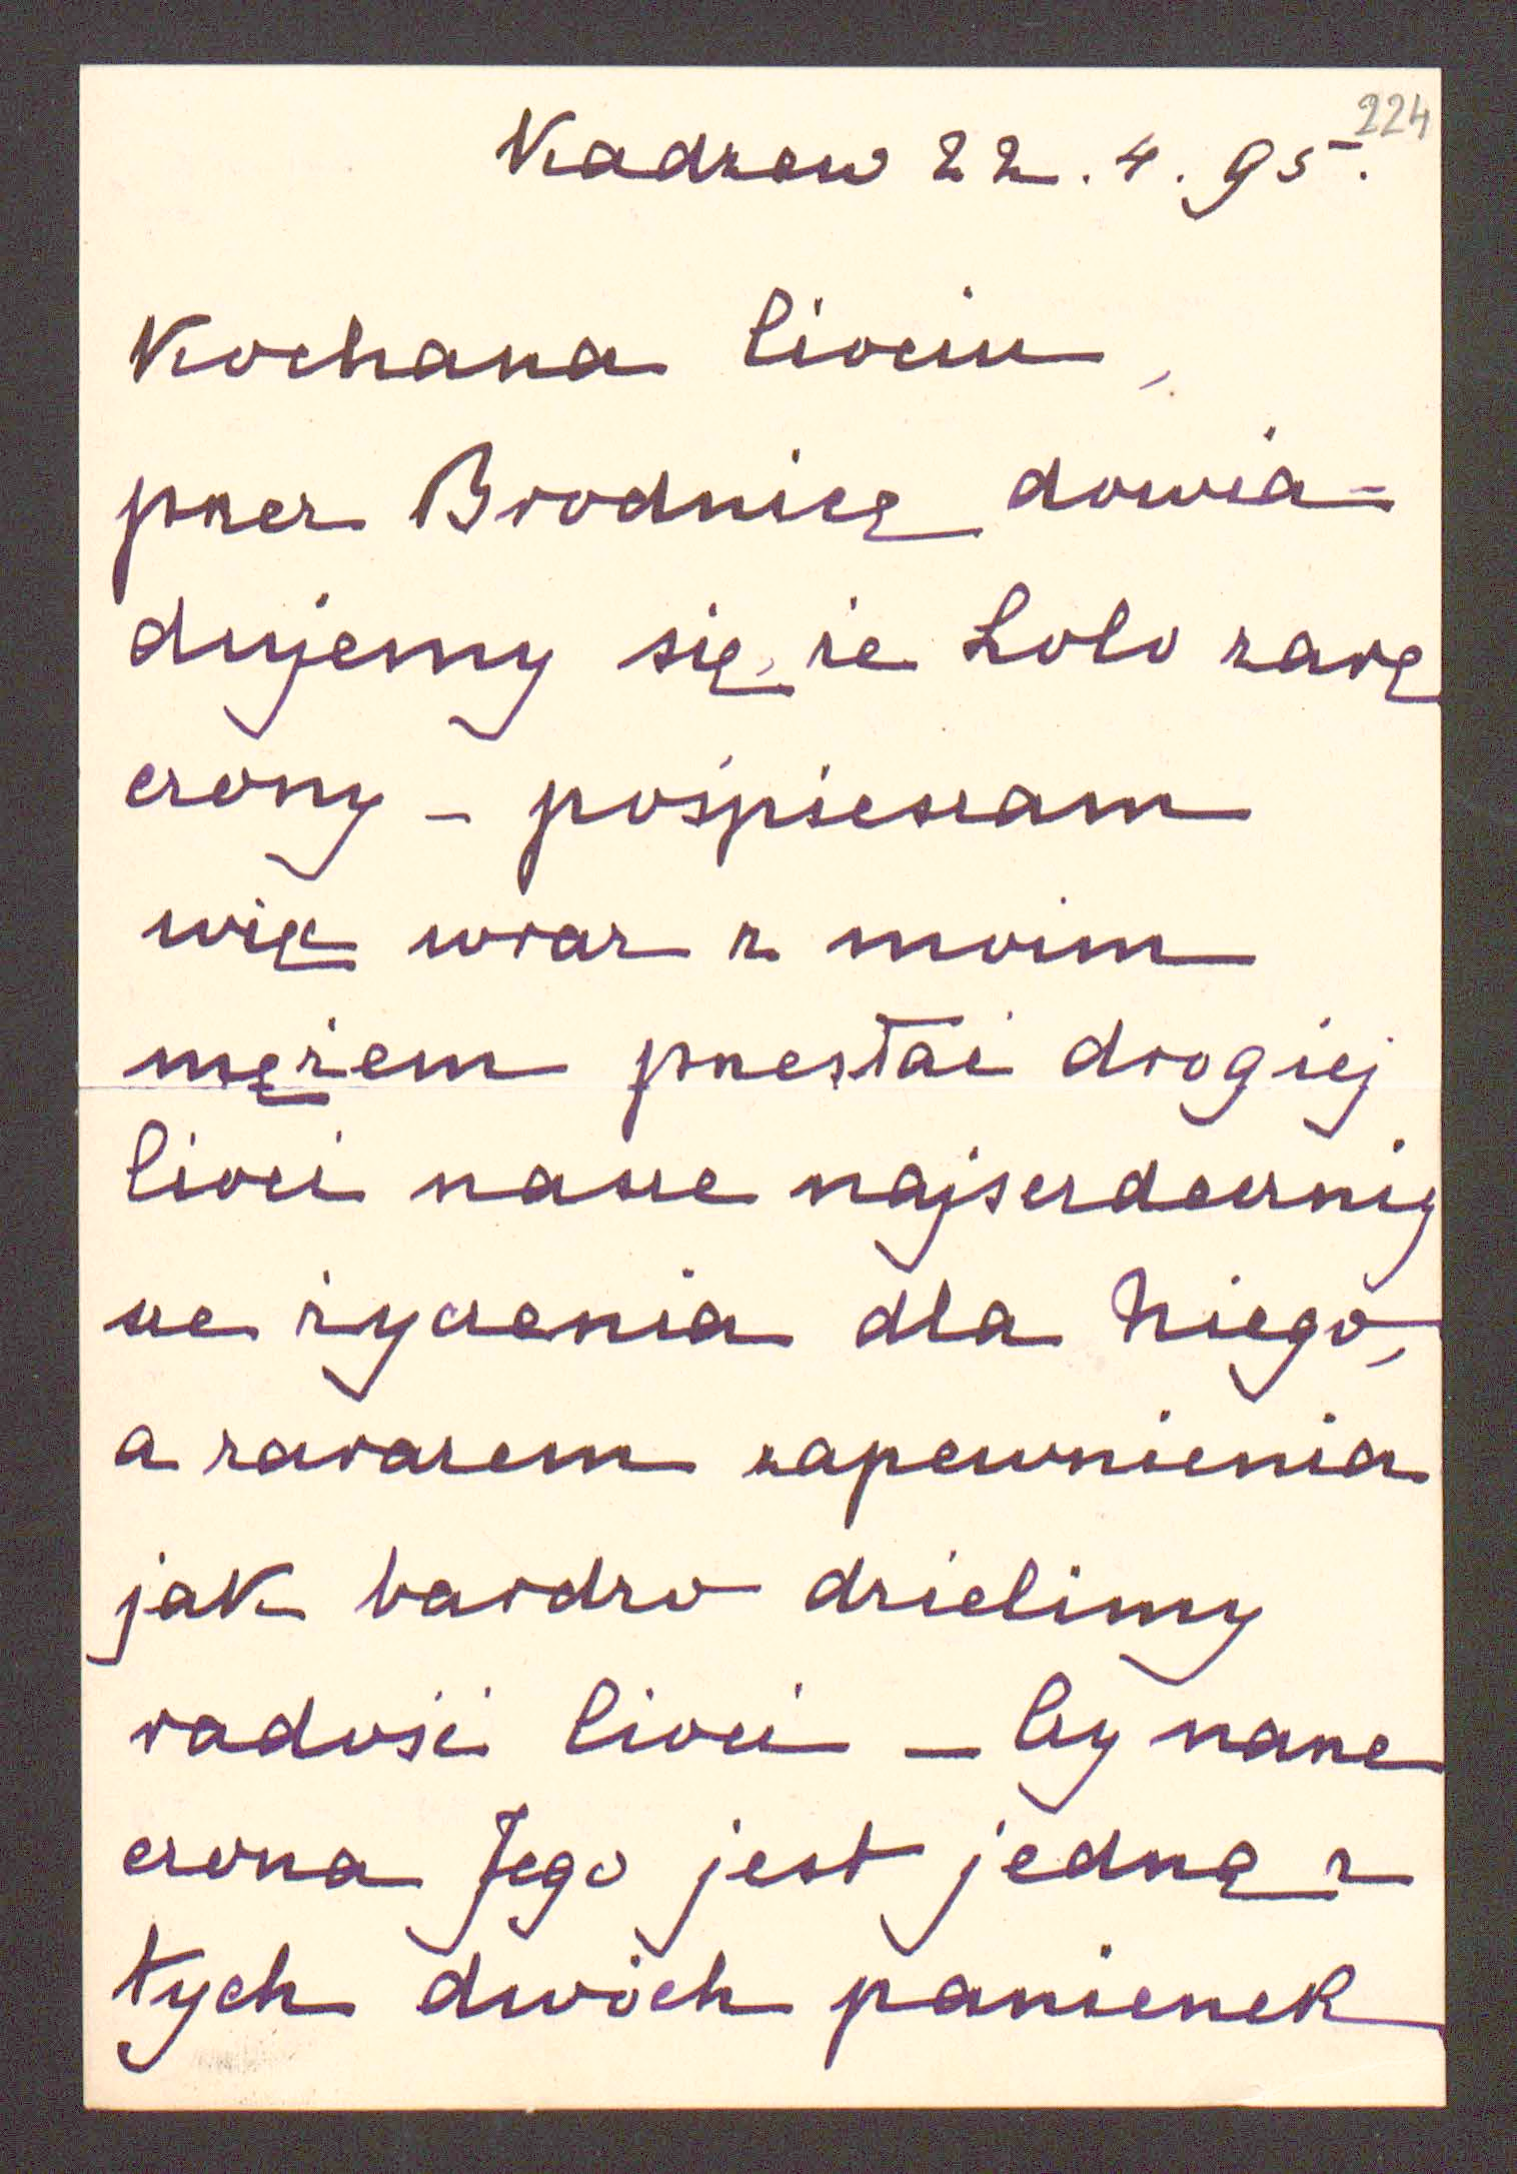 224
Kadzew 22. 4. 95.
Kochana Ciociu,
przez Brodnicę dowia=
dujemy się, że Lolo zarę
czony – pośpieszam
więc wraz z moim
mężem przesłać drogiej
Cioci nasze najserdeczniej
sze życzenia dla Niego,
a zarazem zapewnienia
jak bardzo dzielimy
radość Cioci – Czy narze
czona Jego jest jedną z
tych dwóch panienek